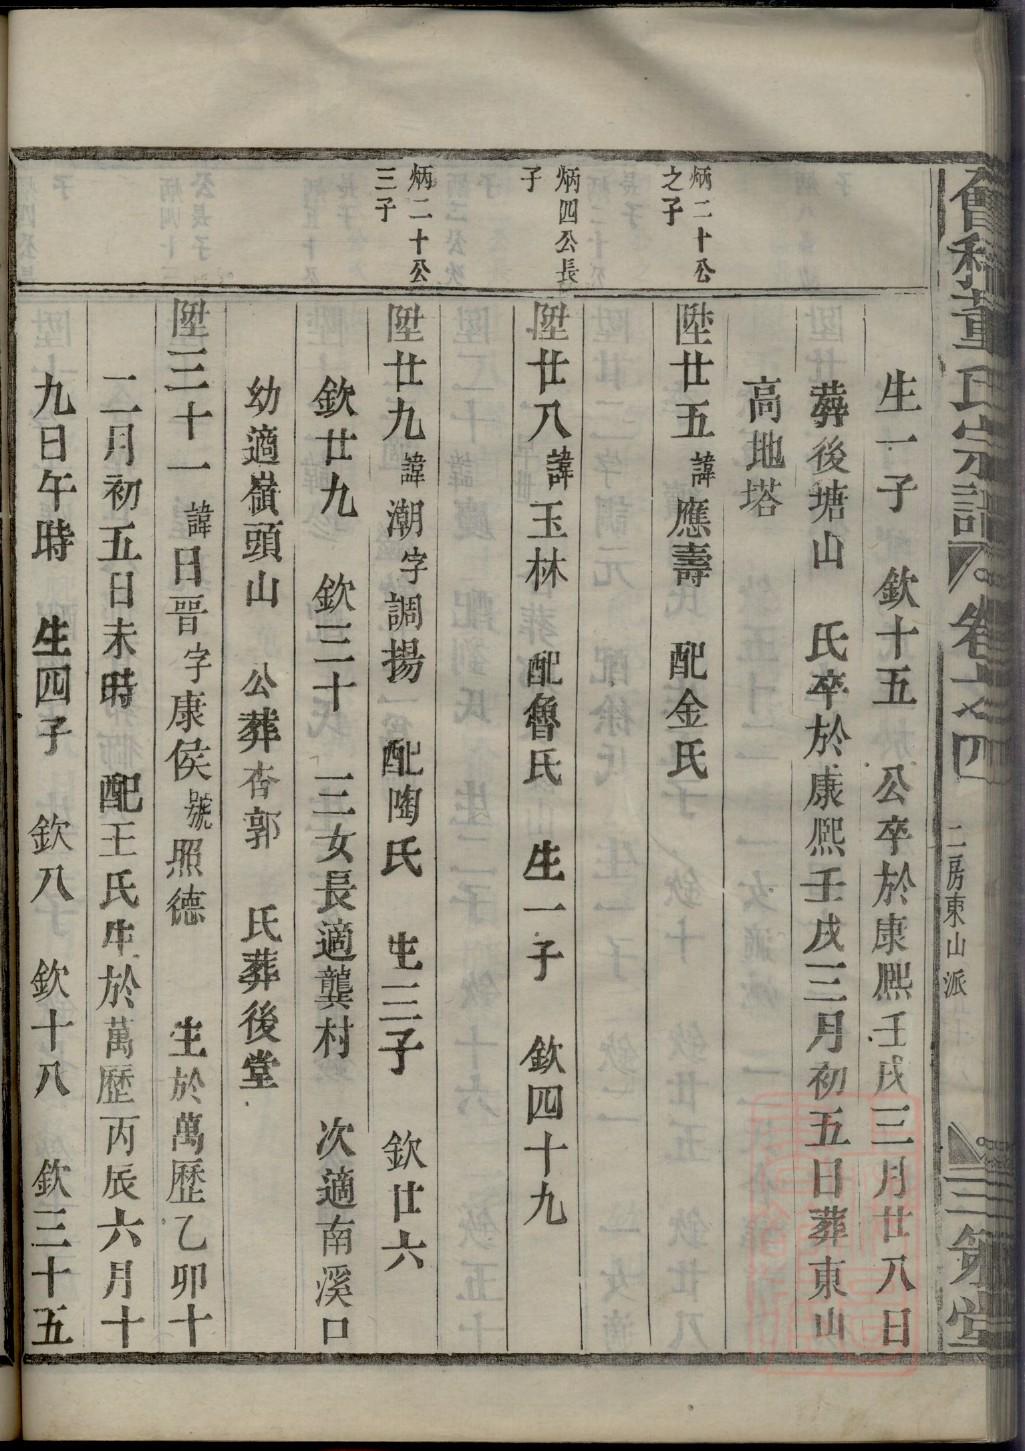 會稽董氏宗譜 卷六之四 二房東山派 三策堂
生一子 欽十五 公卒於康熈壬戌三月廿八日
葬後塘山 氏卒於康熈壬戌三月初五日葬東山
高地塔
炳二十公
之子
陞廿五諱應壽 配金氏
炳四公長
子
陞廿八諱玉林 配魯氏 生一子 欽四十九
炳二十公
三子
陞廿九諱潮字調揚 配陶氏 生三子 欽廿六
欽廿九 欽三十 三女長適龔村 次適南溪口
幼適嶺頭山 公葬杏郭 氏葬後堂
陞三十一諱日晋字康侯號照德 生於萬歷乙卯十
二月初五日未時 配王氏生於萬歷丙辰六月十
九日午時 生四子 欽八 欽十八 欽三十五